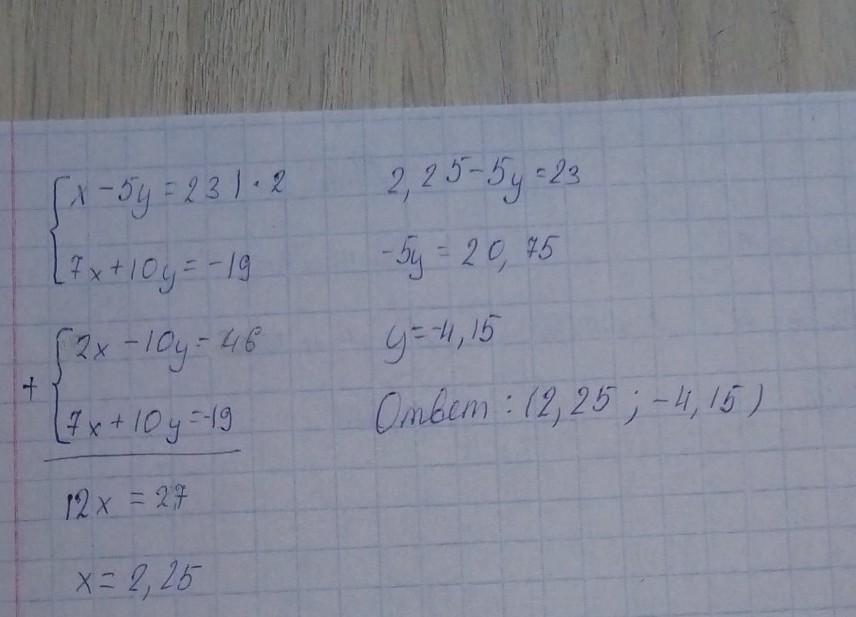 x - 5y = 23 | · 2
7x + 10y = -19
2x - 10y = 46
+
7x + 10y = -19
12x = 27
x = 2,25
2,25 - 5y = 23
-5y = 20,75
y = -4,15
Ответ : (2,25 ; -4,15)